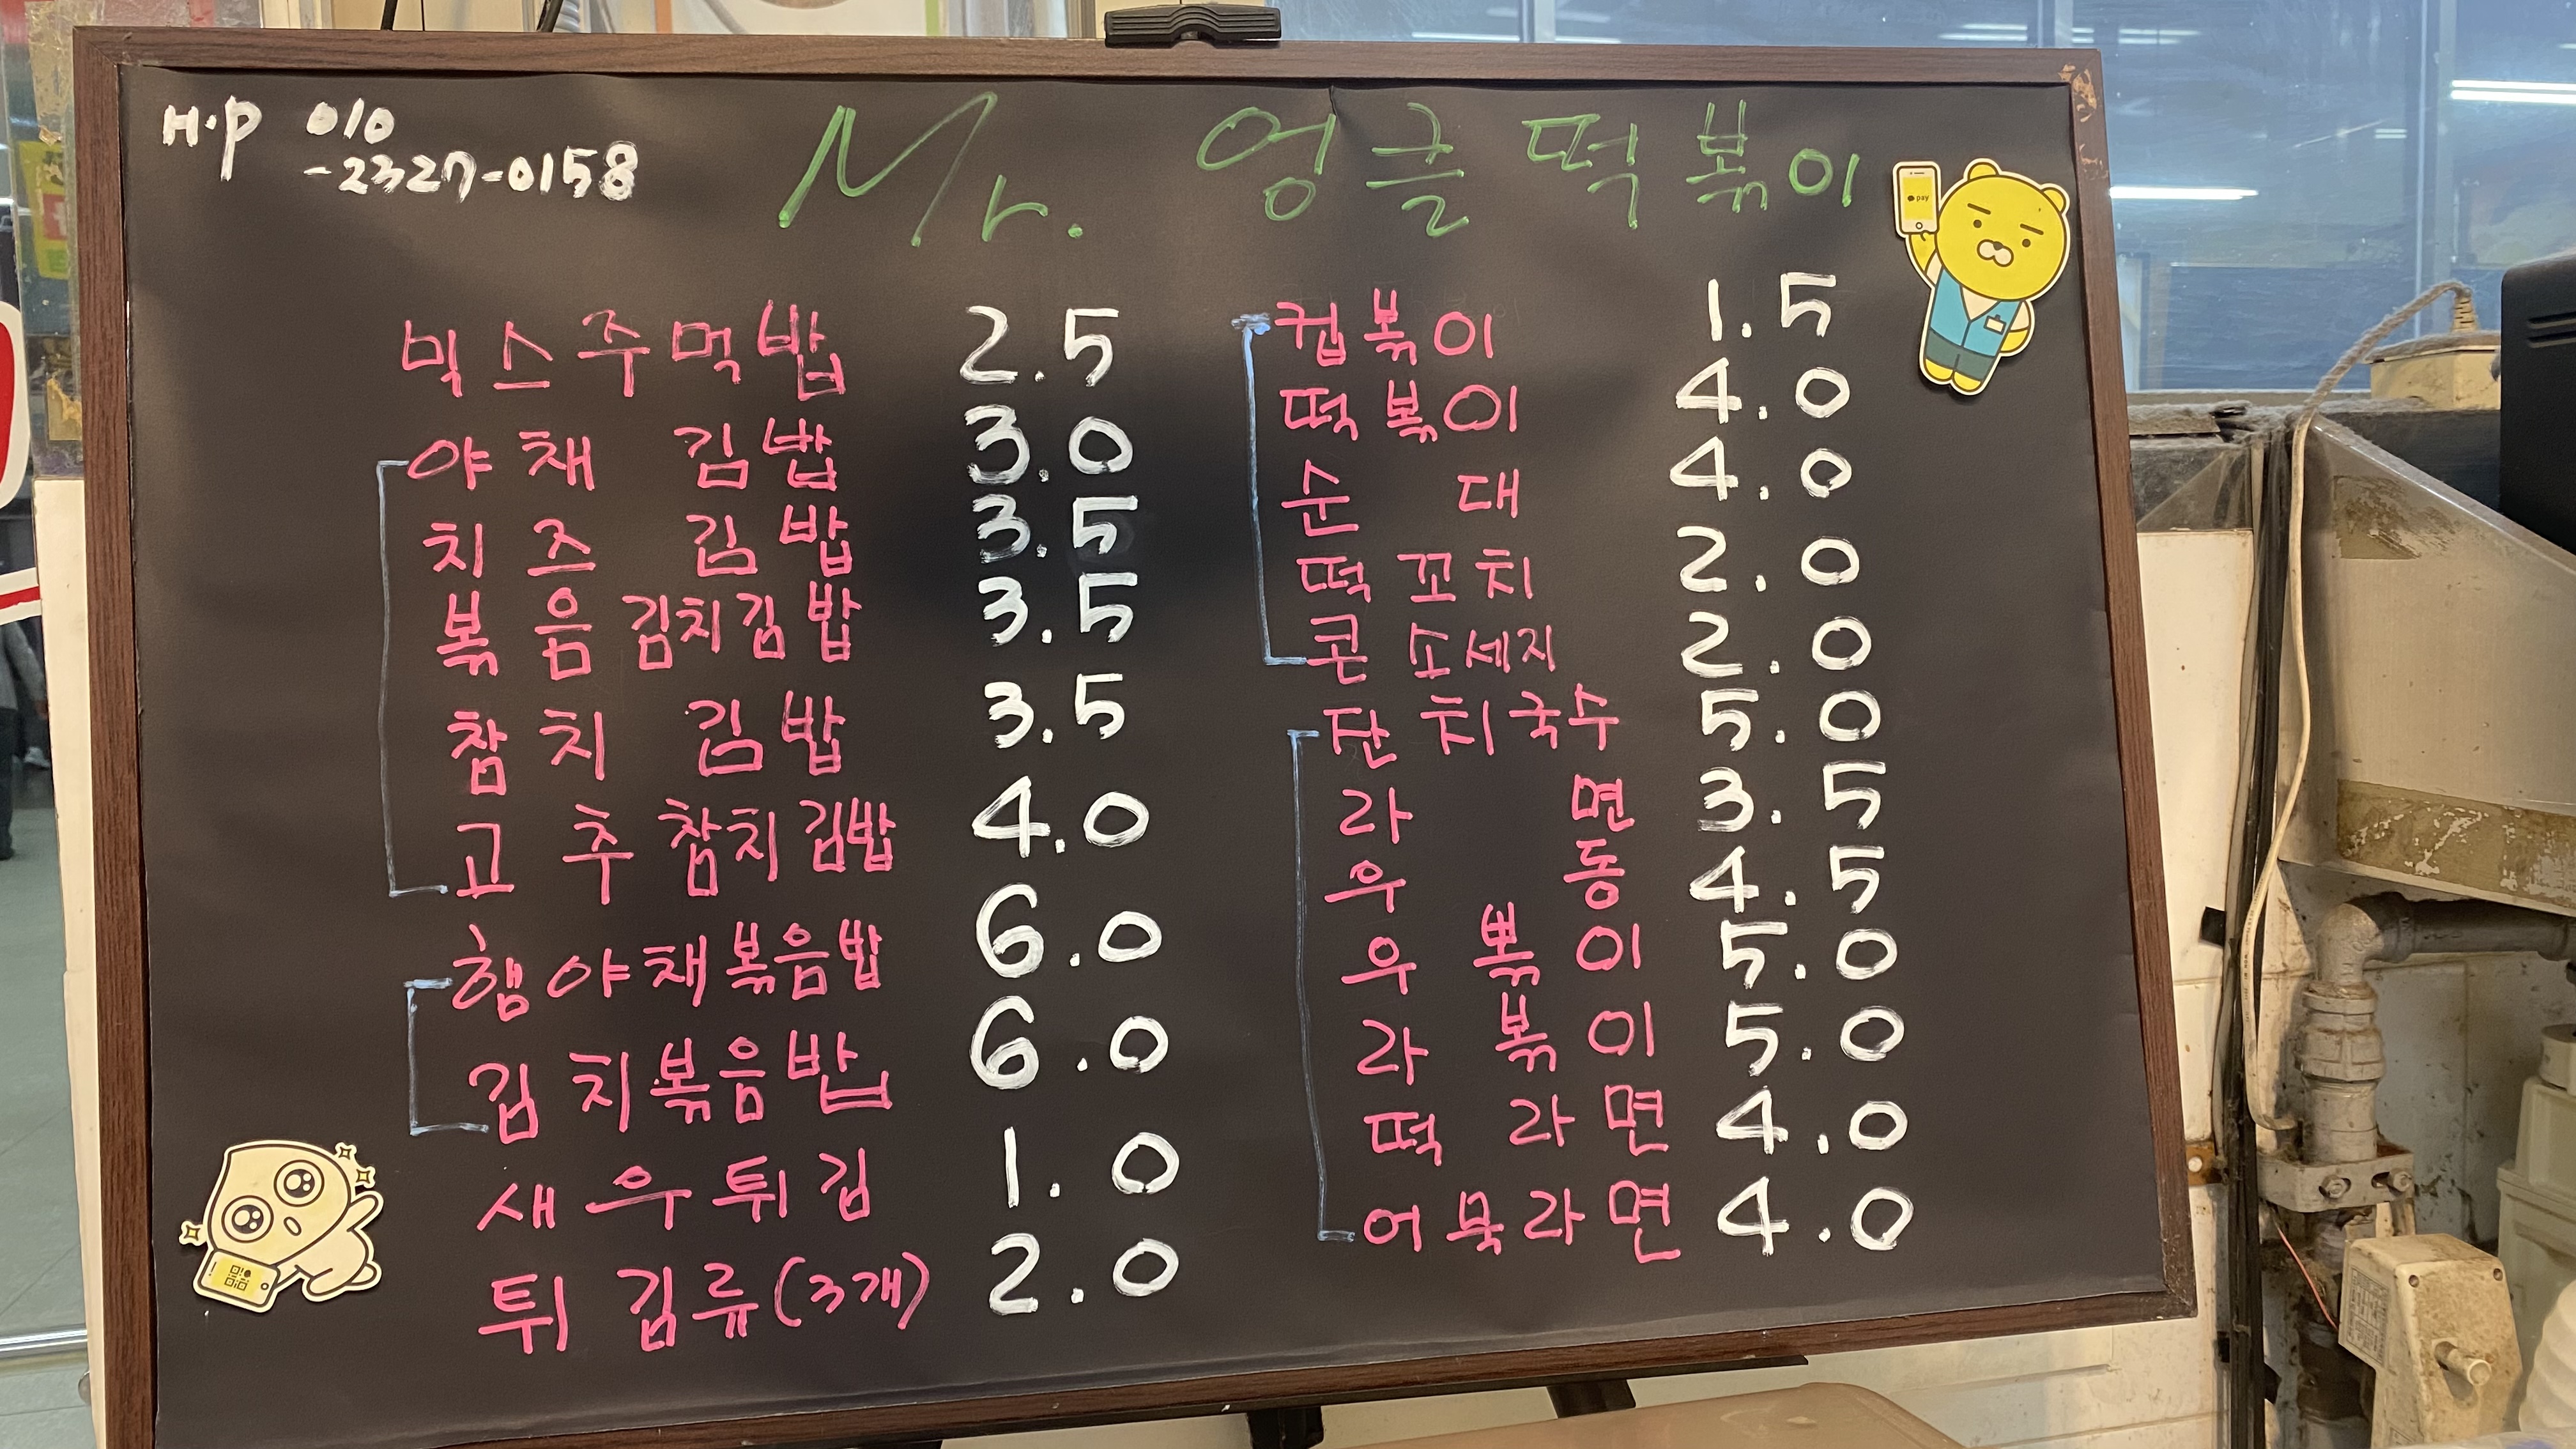 H.P 010
-2327-0158
Mr. 엉클떡볶이
빅스주먹밥 2.5
야채 김밥 3.0
치즈 김밥 3.5
볶음김치김밥 3.5
참치 김밥 3.5
고추참치김밥 4.0
햄야채볶음밥 6.0
김치볶음밥 6.0
새우튀김 1.0
튀김류(3개) 2.0
컵볶이 1.5
떡볶이 4.0
순대 4.0
떡꼬치 2.0
콘소세지 2.0
잔치국수 5.0
라면 3.5
우동 4.5
우볶이 5.0
라볶이 5.0
떡라면 4.0
어묵라면 4.0
pay